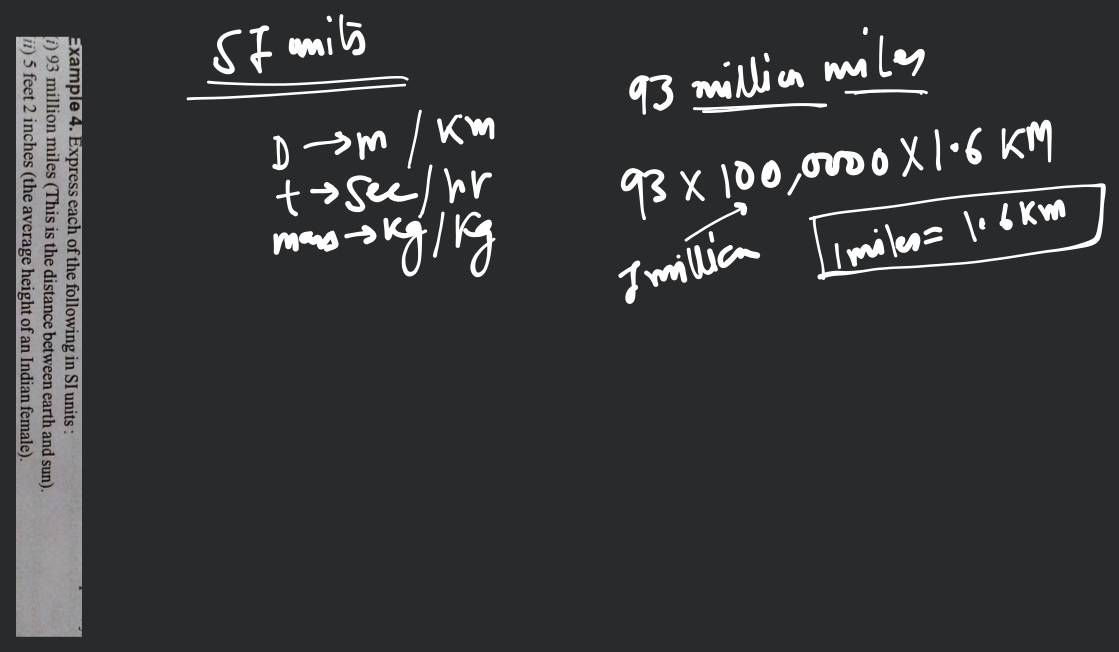 Example 4. Express each of the following in SI units :
i) 93 million miles (This is the distance between earth and sun).
ii) 5 feet 2 inches (the average height of an Indian female).
SI units
D → m / Km
t → Sec / hr
mass → Kg / Kg
93 million miles
93 × 100,0000 × 1.6 KM
1 million
1 miles = 1.6 Km